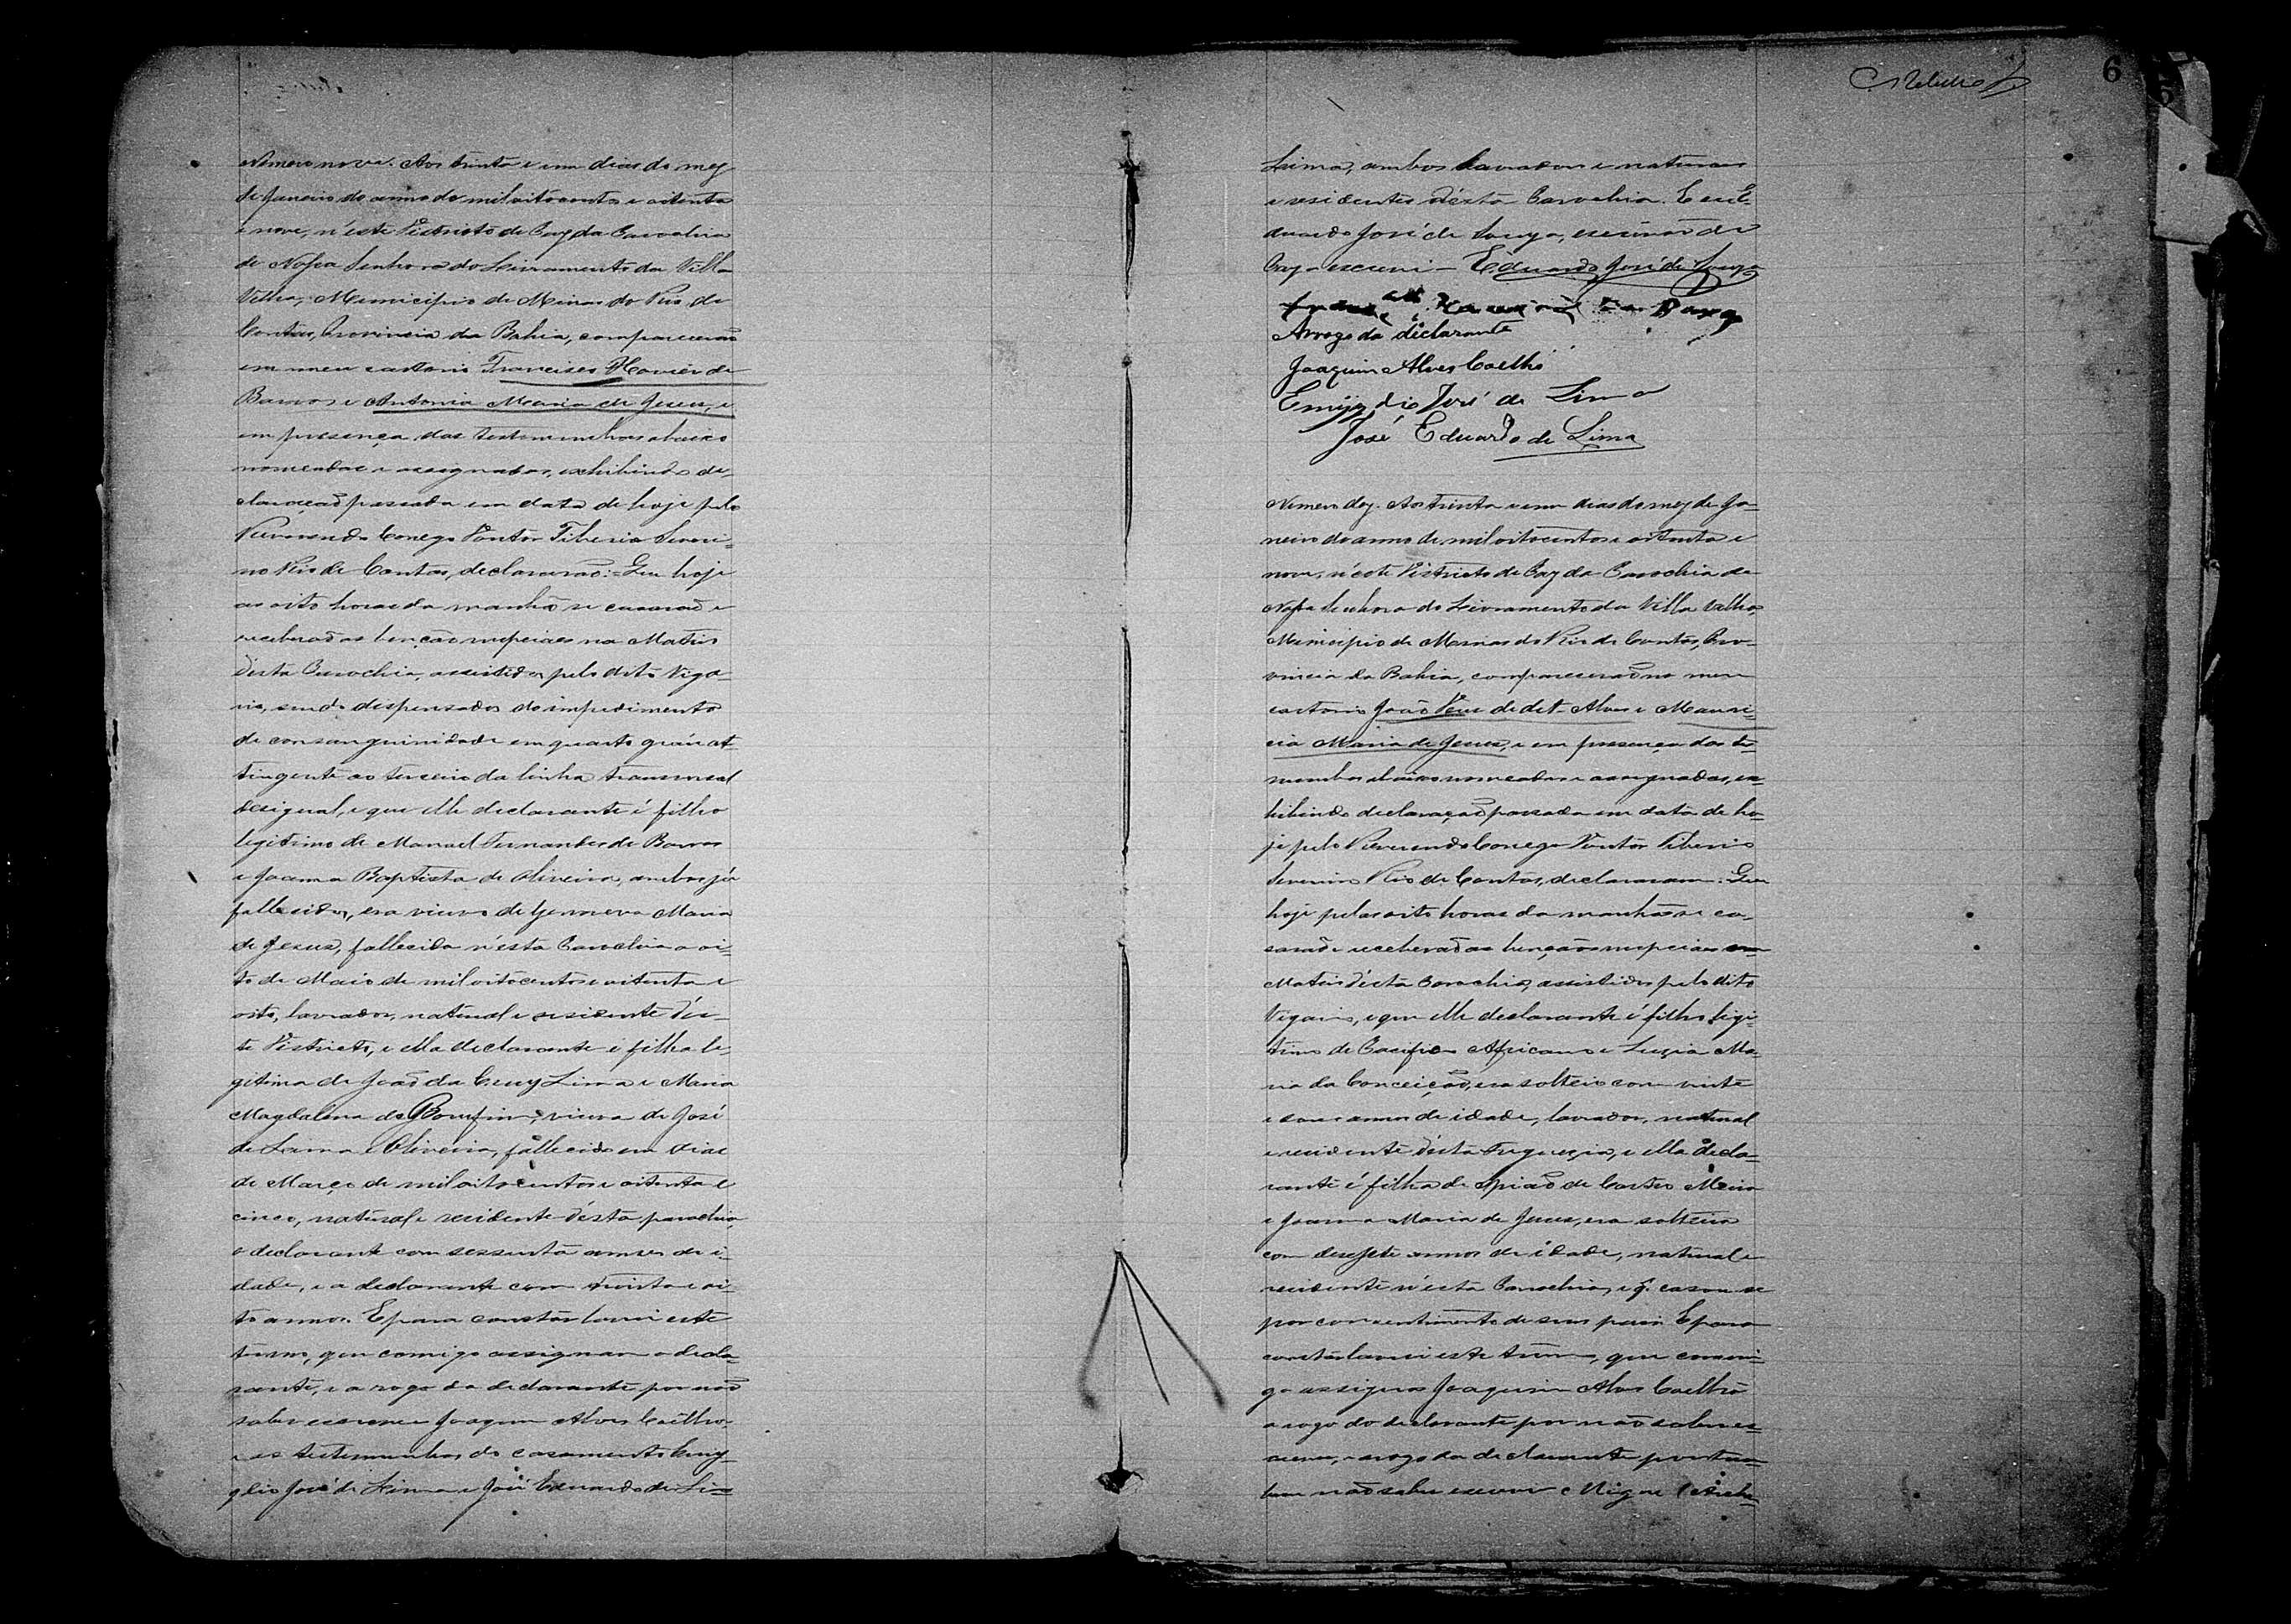 Numero nove. Aos trinta e um dias do mez
de Janeiro do anno de mil oitocentos e oitenta
e nove, n'este Districto de Paz da Parochia
de Nossa Senhora do Livramento da Villa
Velha, Municipio de Minas do Rio de
Contas, Provincia da Bahia, comparecerão
em meu cartorio Francisco Xavier de
Barros e Antonia Maria de Jesus, e
em presença das testemunhas abaixo
nomeadas e assignadas, exhibindo de-
claração passada em data de hoje pelo
Reverendo Conego Pastor Tiberio Severi-
no Rio de Contas, declararão: Que hoje
as oito horas da manhã se casarão e
receberão as bençãos nupciaes na Matris
d'esta Parochia, assistidos pelo dito Viga-
rio, sendo dispensados do impedimento
de consanguinidade em quarto gráu at-
tingente ao terceiro da linha transversal
desigual, e que elle declarante é filho
legitimo de Manoel Fernandes de Barros
e Joanna Baptista de Oliveira, ambos já
fallecidos, era viuvo de Genoveva Maria
de Jesus, fallecida n'esta Parochia a oi-
to de Maio de mil oitocentos e oitenta e
oito, lavrador, natural e residente d'es-
te Districto, e ella declarante é filha le-
gitima de João da Cruz Lima e Maria
Magdalena do Bomfim, viuva de José
de Lima e Oliveira, fallecido em dias
de Março de mil oitocentos e oitenta e
cinco, natural e residente d'esta parochia,
o declarante com sessenta annos de i-
dade, e a declarante com trinta e oi-
to annos. E para constar lavrei este
termo, que comigo assignam o decla-
rante, e a rogo da declarante por não
saber escrever Joaquim Alves Coelho
e as testemunhas do casamento Emy-
gdio José de Lima e José Eduardo de Li-
6
Lima, ambos lavradores e naturaes
e residentes d'esta Parochia. E eu E-
duardo José de Souza, escrivão de
Paz o escrevi - Eduardo José de Souza
Arrogo da declarante
Joaquim Alves Coelho
Emijgdio José de Lima
José Eduardo de Lima
Numero dez. Aos trinta e um dias do mez de Ja-
neiro do anno de mil oitocentos e oitenta e
nove, n'este Districto de Paz da Parochia de
Nossa Senhora do Livramento da Villa Velha,
Municipio de Minas do Rio de Contas, Pro-
vincia da Bahia, comparecerão no meu
cartorio João Alves e Mauri-
cia Maria de Jesus, e em presença das tes-
temunhas abaixo nomeadas e assignadas, ex-
hibindo declaração passada em data de ho-
je pelo Reverendo Conego Pastor Tiberio
Severino Rio de Contas, declararam: Que
hoje pelas oito horas da manhã se ca-
sarão e receberão as bençãos nupciaes na
Matris d'esta Parochia, assistidos pelo dito
Vigario, e que elle declarante é filho legi-
timo de Africano e Luzia Ma-
ria da Conceição, era solteiro com vinte
e annos de idade, lavrador, natural
e residente d'esta Freguezia, e ella decla-
rante é filha de de Castro Meira
e Joanna Maria de Jesus, era solteira
com desessete annos de idade, natural e
residente n'esta Parochia, e q. casou-se
por consentimento de seus pais. E para
constar lavrei este termo, que commi-
go assignou Joaquim Alves Coelho
a rogo do declarante por não saber es-
crever, a rogo da declarante por tam-
bem não saber escrever Miguel